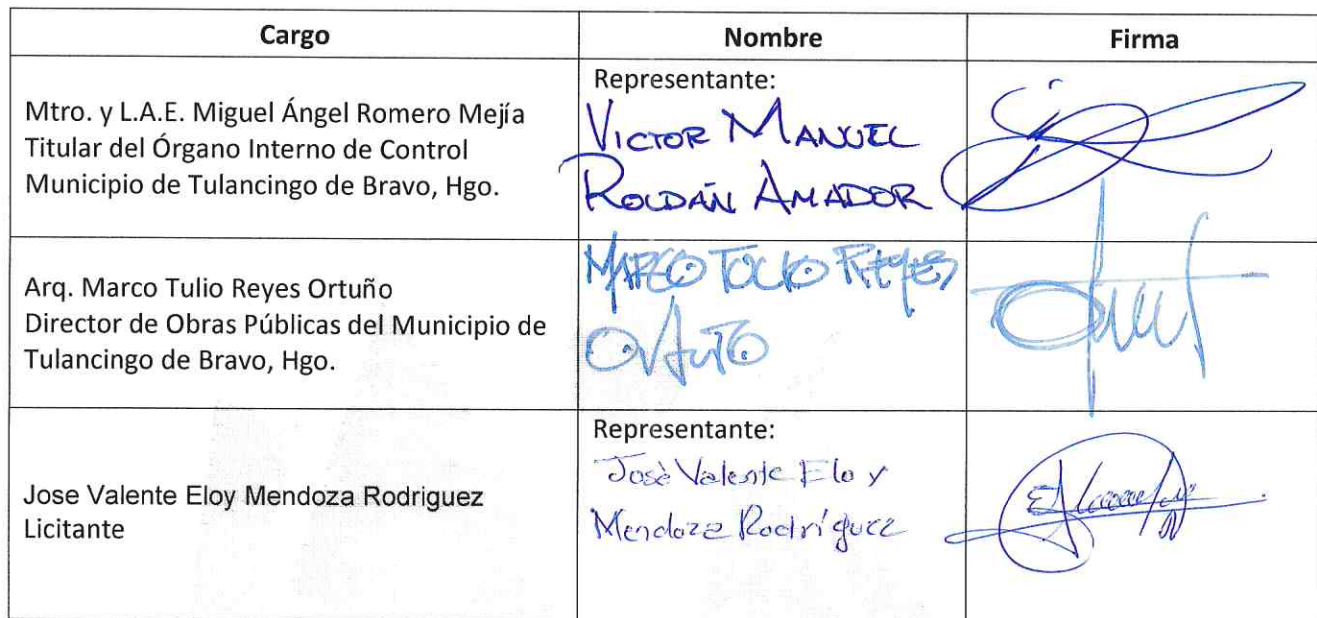 Cargo
Nombre
Firma
Mtro. y L.A.E. Miguel Ángel Romero Mejía
Titular del Órgano Interno de Control
Municipio de Tulancingo de Bravo, Hgo.
Representante:
VICTOR MANUEL
ROLDÁN AMADOR
Arq. Marco Tulio Reyes Ortuño
Director de Obras Públicas del Municipio de
Tulancingo de Bravo, Hgo.
MARCO TULIO REYES
Jose Valente Eloy Mendoza Rodriguez
Licitante
Representante:
José Valente Eloy
Mendoza Rodríguez